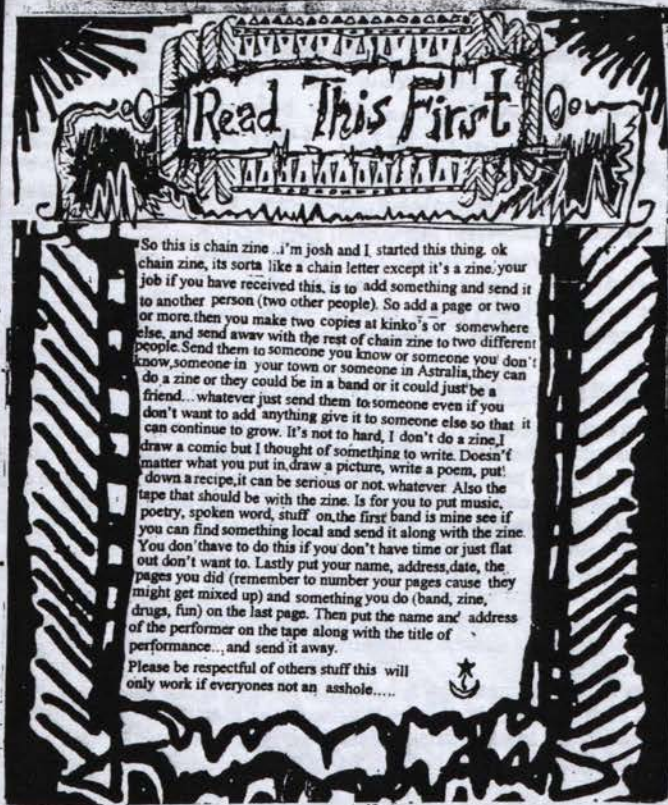 Read This First
So this is chain zine ..i'm josh and I started this thing. ok
chain zine, its sorta like a chain letter except it's a zine. your
job if you have received this, is to add something and send it
to another person (two other people). So add a page or two
or more.then you make two copies at kinko's or somewhere
else, and send away with the rest of chain zine to two different
people.Send them to someone you know or someone you don't
know,someone in your town or someone in Astralia,they can
do a zine or they could be in a band or it could just be a
friend... whatever just send them to someone even if you
don't want to add anything give it to someone else so that it
can continue to grow. It's not to hard, I don't do a zine,I
draw a comic but I thought of something to write. Doesn't
matter what you put in,draw a picture, write a poem, put
down a recipe,it can be serious or not. whatever Also the
tape that should be with the zine. Is for you to put music,
poetry, spoken word, stuff on,the first band is mine see if
you can find something local and send it along with the zine.
You don'thave to do this if you don't have time or just flat
out don't want to. Lastly put your name, address,date, the
pages you did (remember to number your pages cause they
might get mixed up) and something you do (band, zine,
drugs, fun) on the last page. Then put the name and address
of the performer on the tape along with the title of
performance... and send it away.
Please be respectful of others stuff this will
only work if everyones not an asshole.....